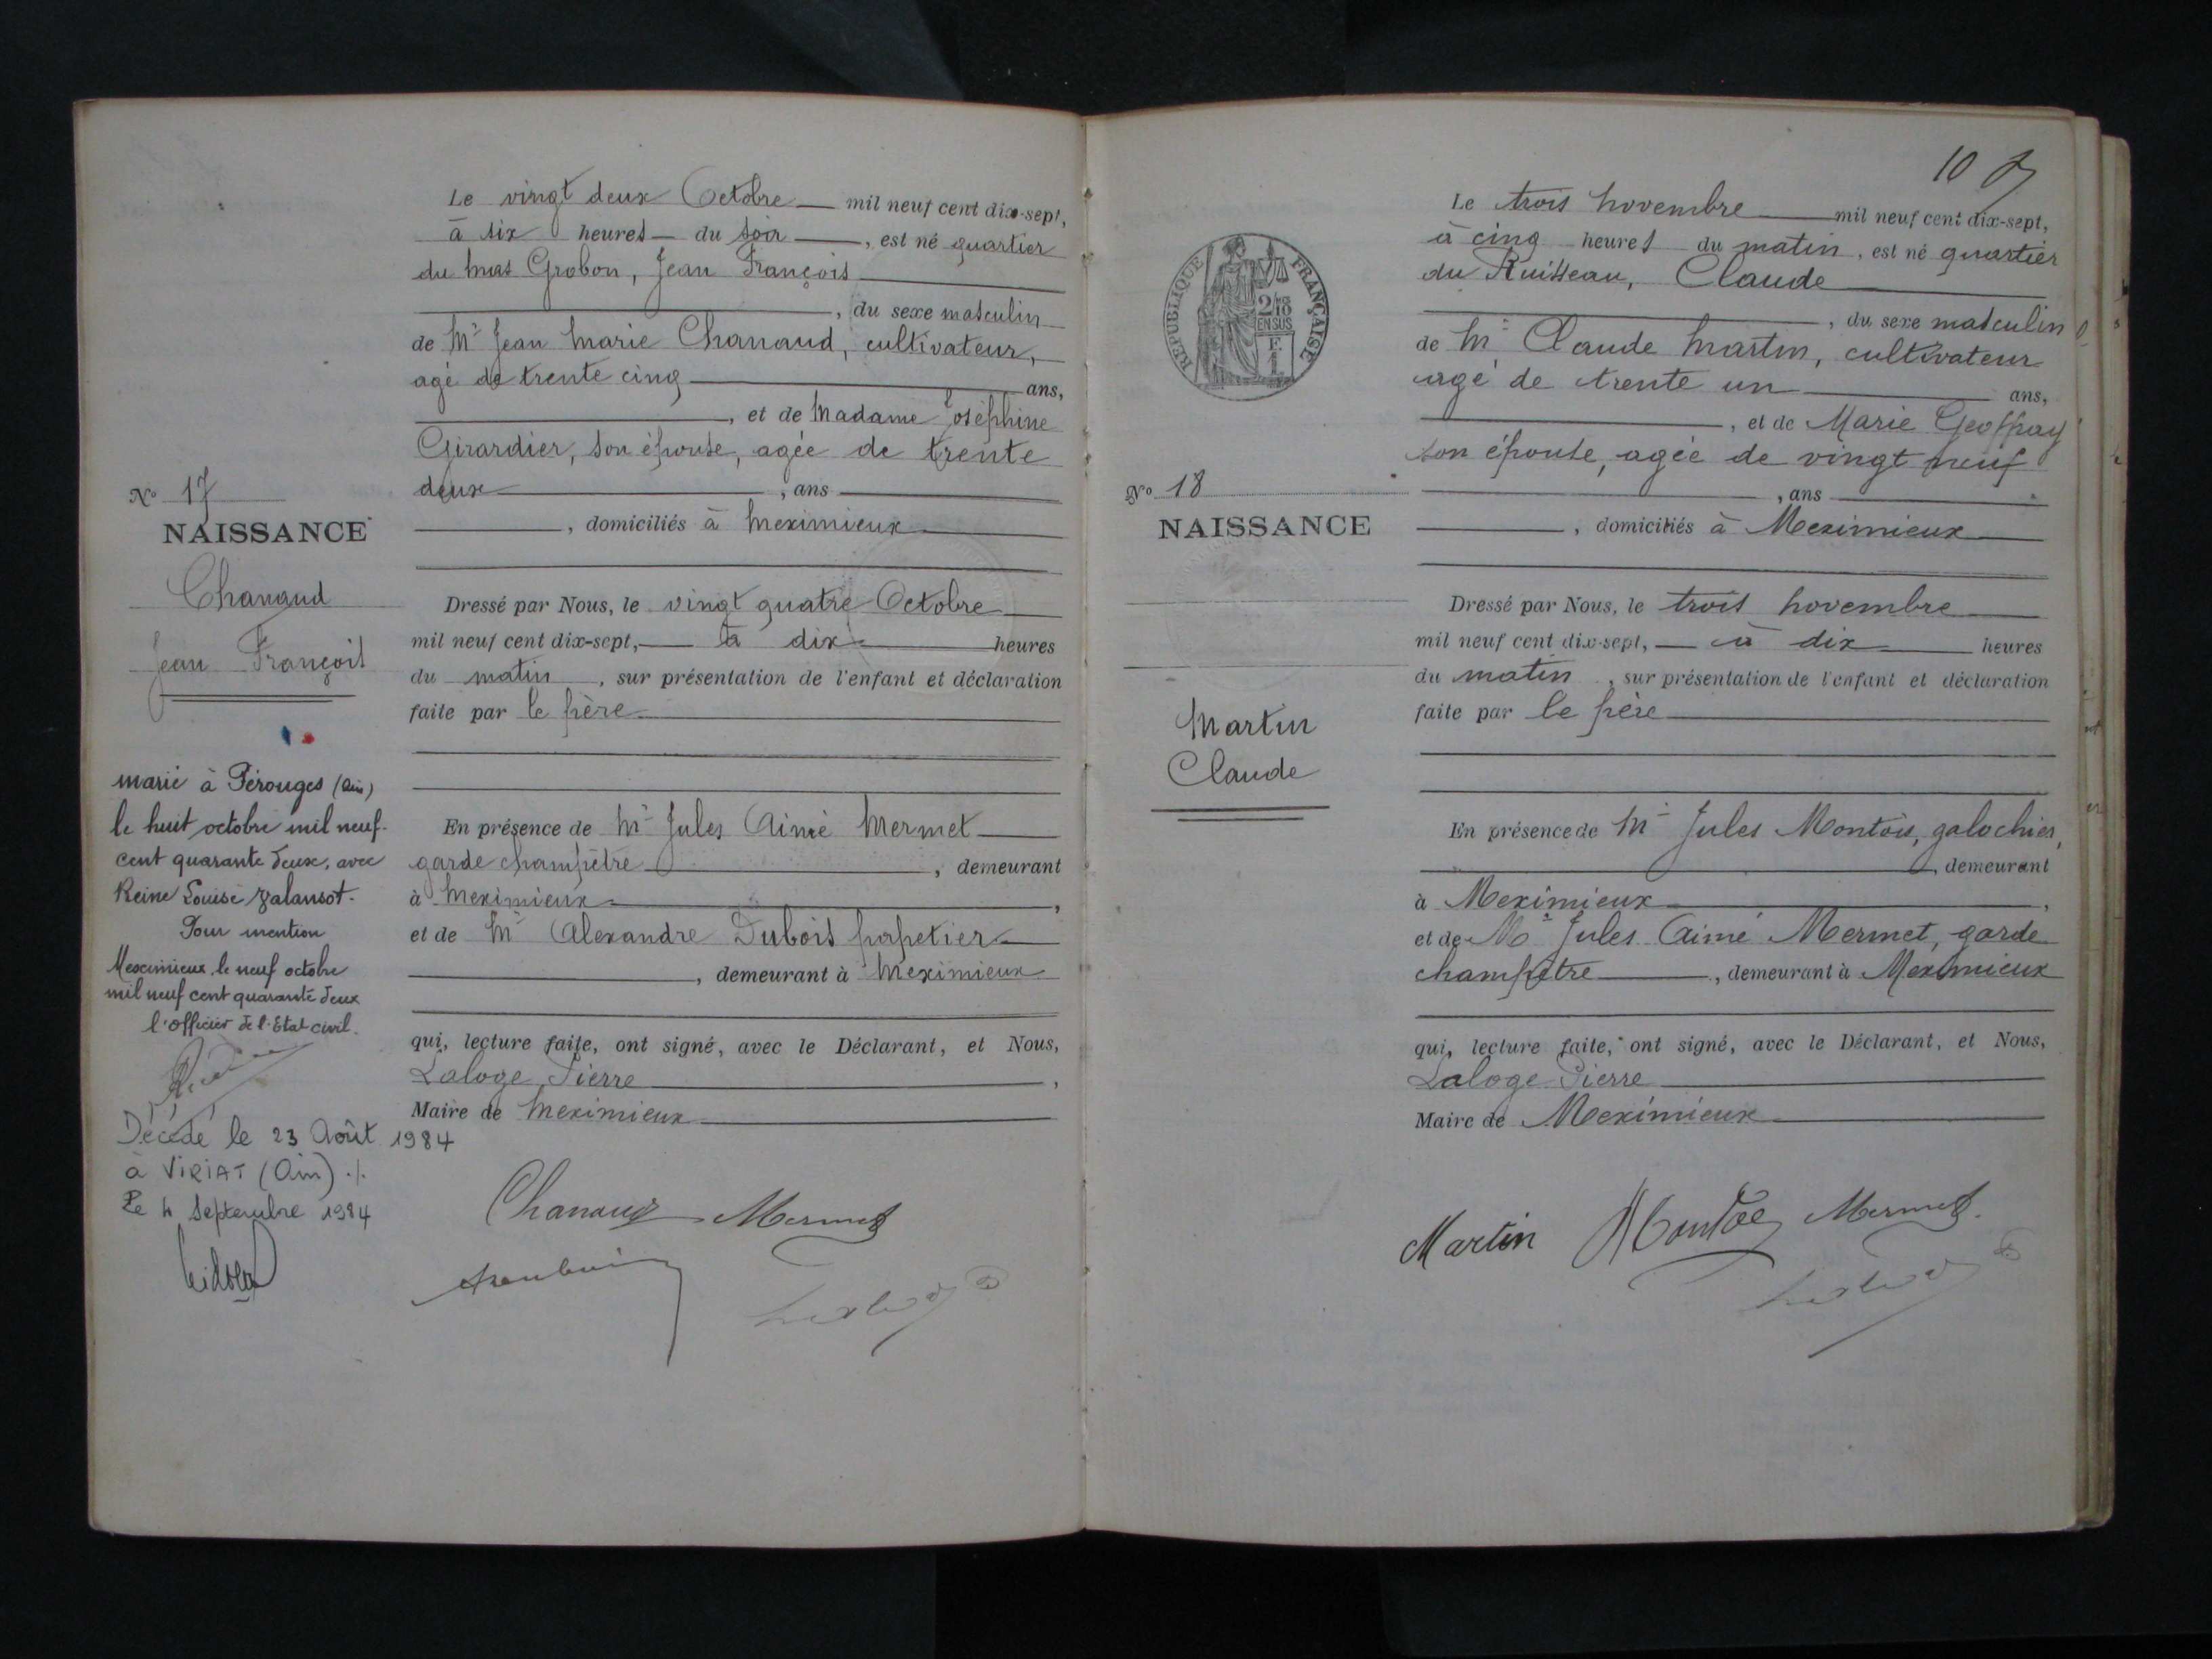 Le vingt deux Octobre mil neuf cent dix-sept,
à six heures du soir, est né quartier
du mas Grobon, Jean François
, du sexe masculin
de Mr Jean Marie Chanaud, cultivateur,
agé de trente cinq ans,
, et de Madame Joséphine
Girardier, son épouse, agée de trente
deux, ans
, domiciliés à Meximieux
No 17
NAISSANCE
Chanaud
Jean François
Dressé par Nous, le vingt quatre Octobre
mil neuf cent dix-sept, à dix heures
du matin, sur présentation de l'enfant et déclaration
faite par le père
marié à Pérouges (Ain)
le huit octobre mil neuf-
cent quarante deux, avec
Reine Louise
Pour mention
Meximieux, le neuf octobre
mil neuf cent quarante deux
l'officier de l'Etat civil.
Décédé le 23 Août 1984
à VIRIAT (Ain) ./.
Le 4 Septembre 1984
En présence de Mr Jules Aimé Mermet
garde champêtre, demeurant
à Meximieux,
et de Mr Alexandre Dubois
, demeurant à Meximieux
qui, lecture faite, ont signé, avec le Déclarant, et Nous,
Laloge Pierre,
Maire de Meximieux
Chanaud Mermet
10
Le trois Novembre mil neuf cent dix-sept,
à cinq heures du matin, est né quartier
du Ruisseau, Claude
, du sexe masculin
de Mr Claude Martin, cultivateur
agé de trente un ans,
, et de Marie Geoffray
son épouse, agée de vingt neuf
, ans
, domiciliés à Meximieux
RÉPUBLIQUE FRANÇAISE
2/10
EN SUS
F.
1
No 18
NAISSANCE
Martin
Claude
Dressé par Nous, le trois Novembre
mil neuf cent dix-sept, à dix heures
du matin, sur présentation de l'enfant et déclaration
faite par le père
En présence de Mr Jules Montois, galochier,
demeurant
à Meximieux,
et de Mr Jules Aimé Mermet, garde
champêtre, demeurant à Meximieux
qui, lecture faite, ont signé, avec le Déclarant, et Nous,
Laloge Pierre
Maire de Meximieux
Martin Mermet